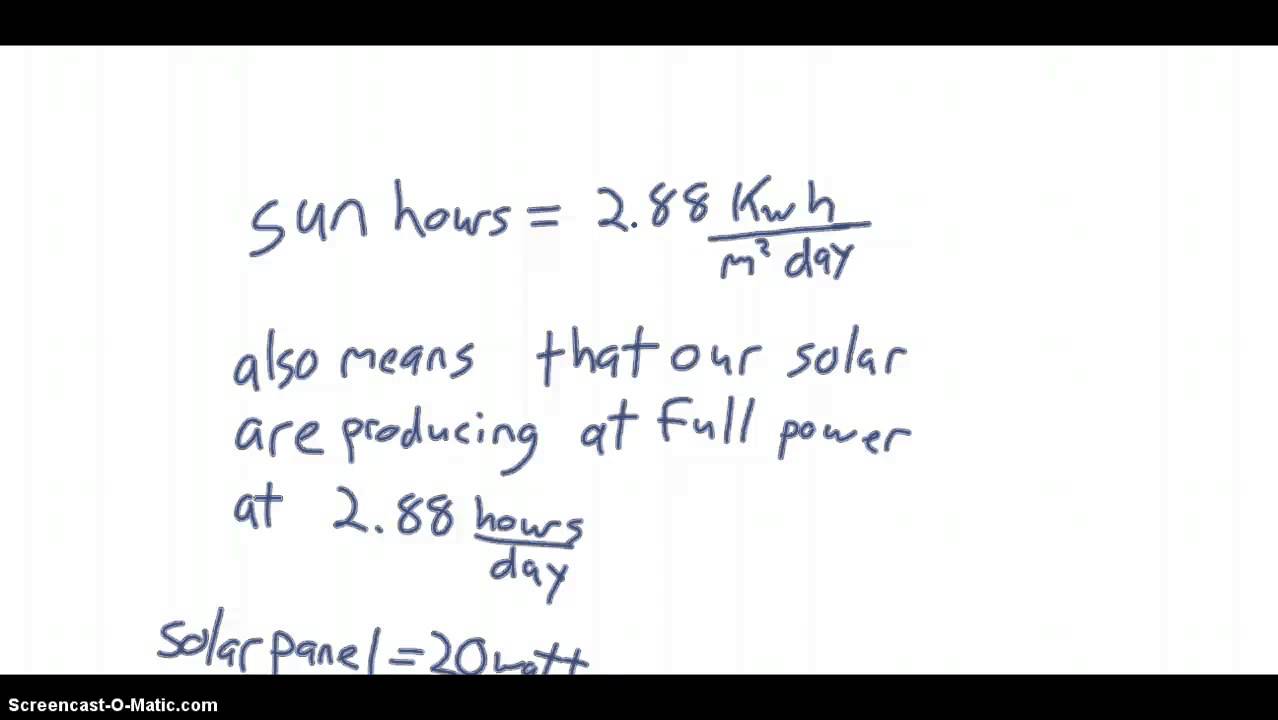 sun hours = 2.88 Kwh/m² day
also means that our solar
are producing at full power
at 2.88 hours/day
solar panel = 20 watt
Screencast-O-Matic.com